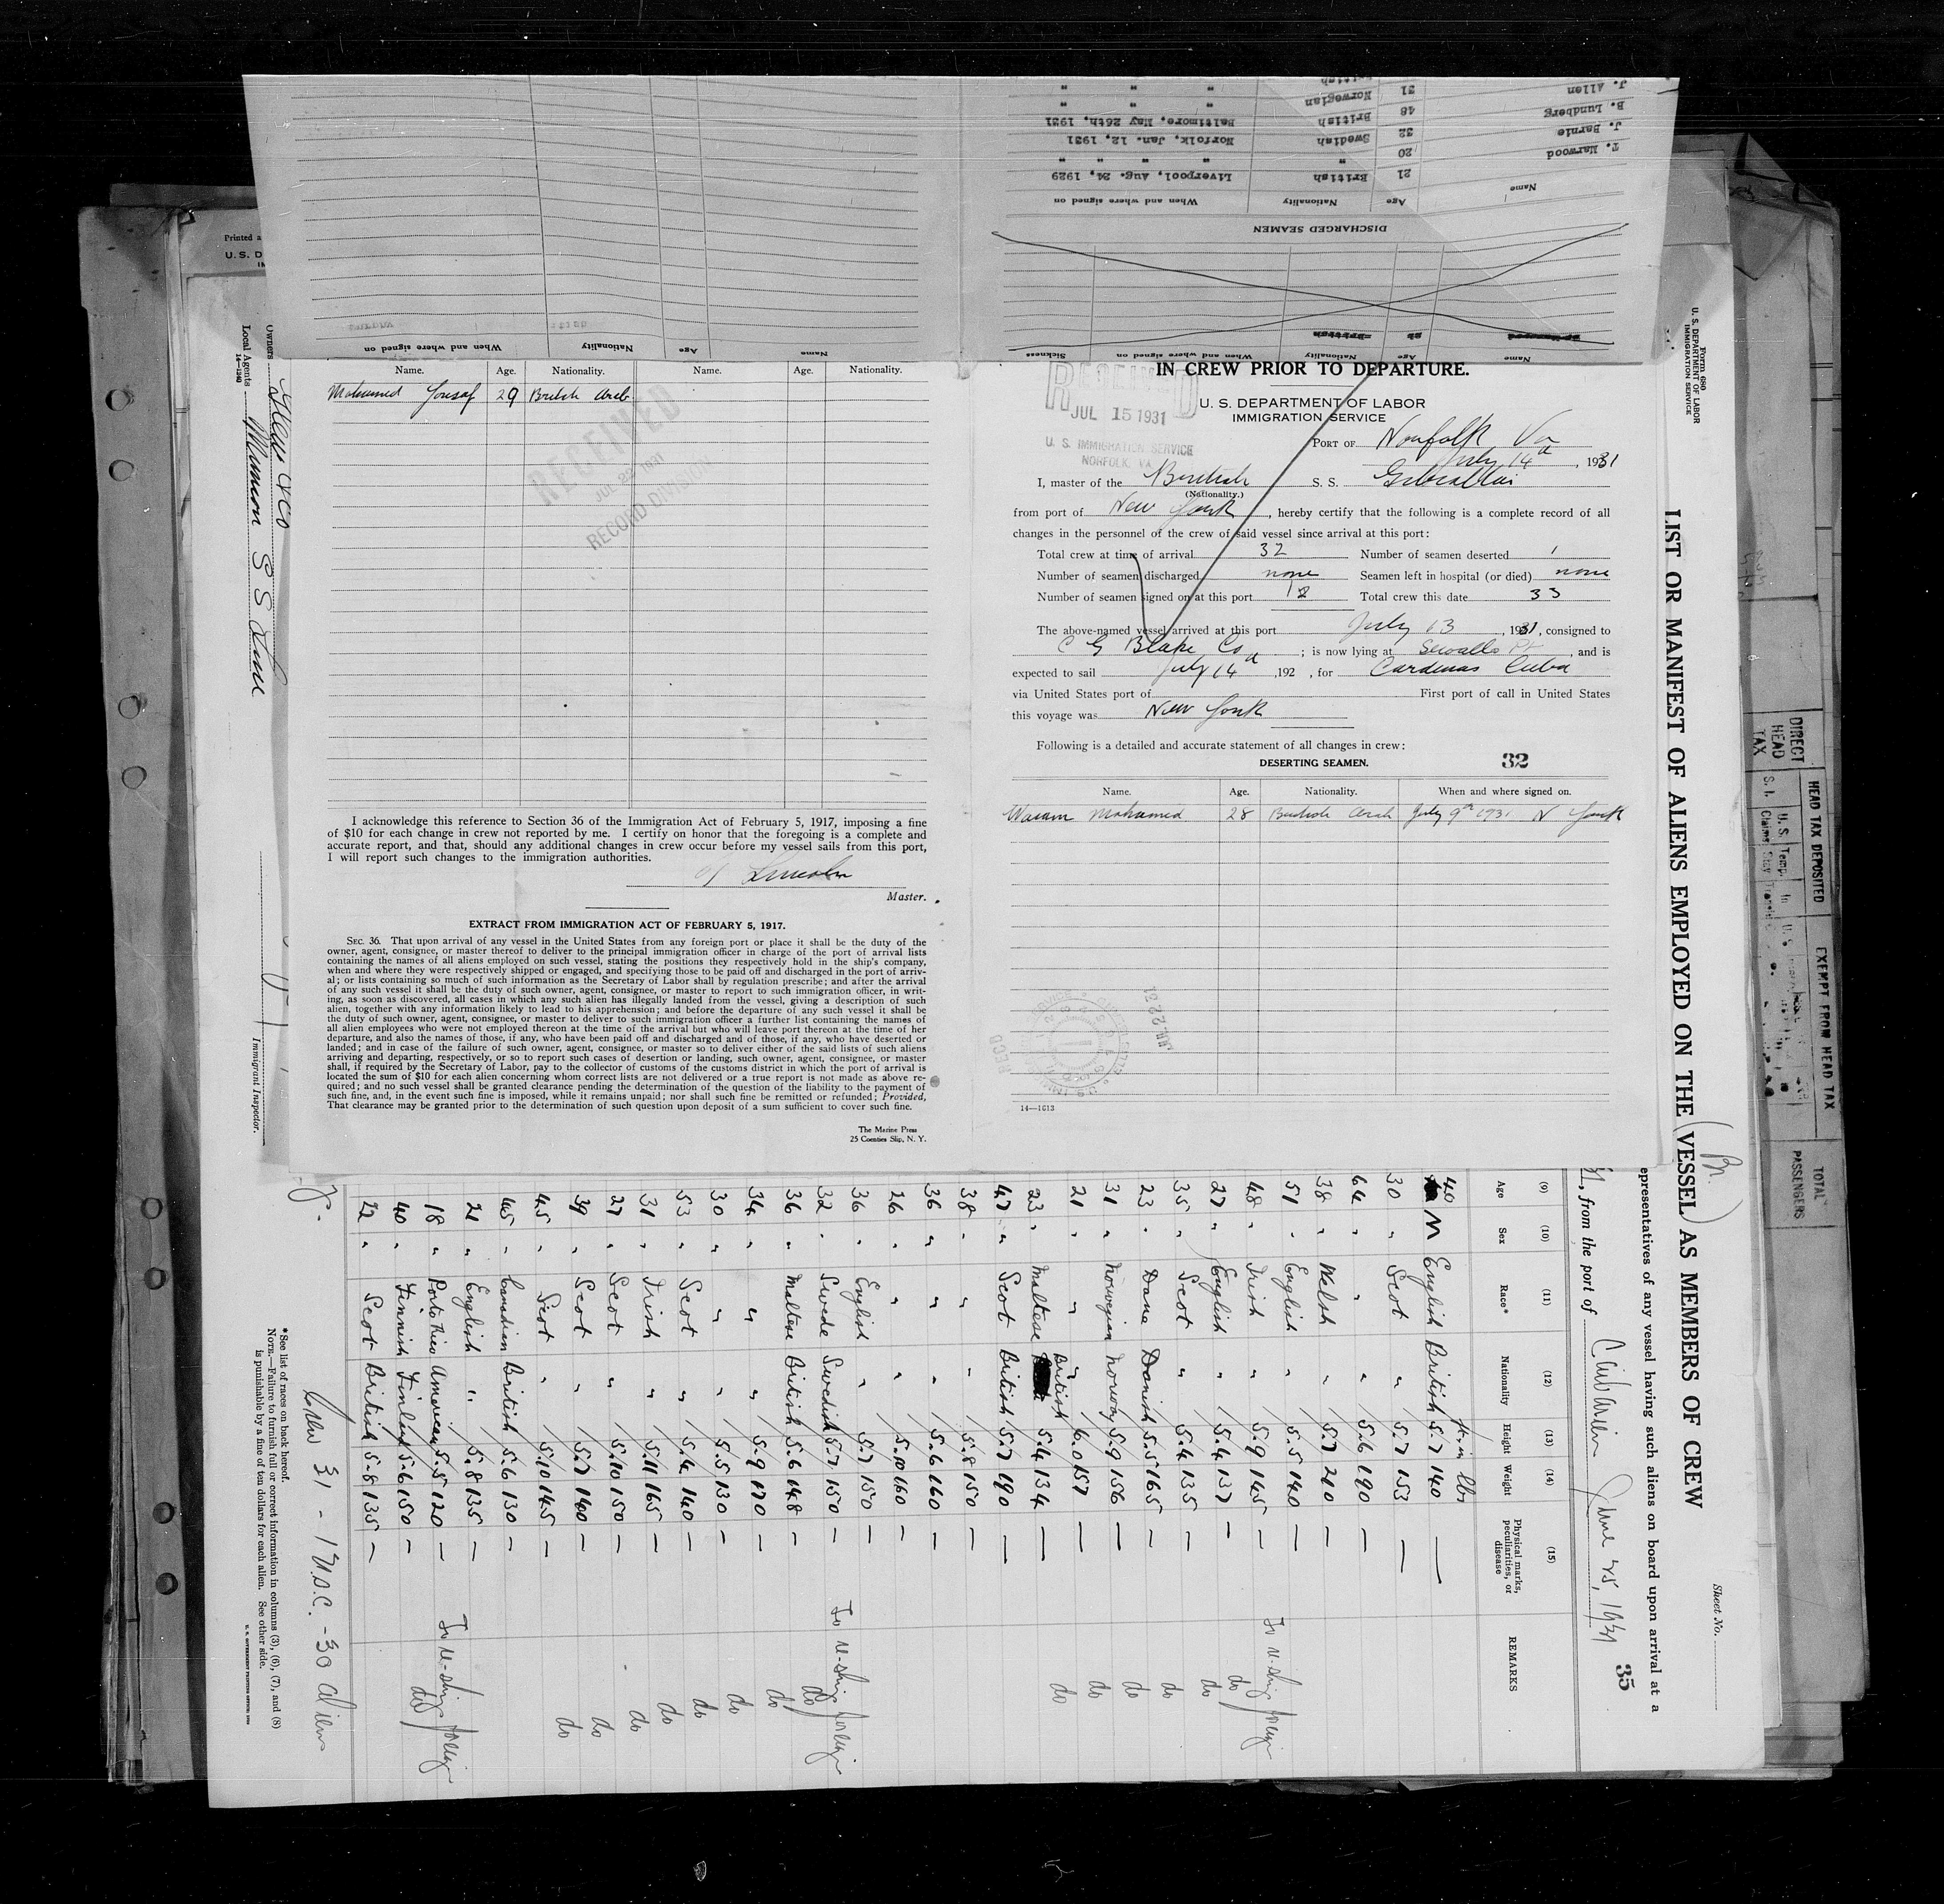 J. Allen 31 Norwegian " " "
B. Lundberg 48 British " " "
J. Barnie 32 Swedish Baltimore, May 26th, 1931
T. Marwood 20 " Norfolk, Jan. 12, 1931
21 British Liverpool, Aug. 24, 1929
Name Age Nationality When and where signed on
DISCHARGED SEAMEN
Name Age Nationality When and where signed on Sickness
Name Age Nationality When and where signed on
Name. Age. Nationality. Name. Age. Nationality.
Mohamed Yousaf 29 British Arab
RECEIVED
JUL 22 1931
RECORD DIVISION
I acknowledge this reference to Section 36 of the Immigration Act of February 5, 1917, imposing a fine
of $10 for each change in crew not reported by me. I certify on honor that the foregoing is a complete and
accurate report, and that, should any additional changes in crew occur before my vessel sails from this port,
I will report such changes to the immigration authorities.
Lincoln
Master.
EXTRACT FROM IMMIGRATION ACT OF FEBRUARY 5, 1917.
SEC. 36. That upon arrival of any vessel in the United States from any foreign port or place it shall be the duty of the
owner, agent, consignee, or master thereof to deliver to the principal immigration officer in charge of the port of arrival lists
containing the names of all aliens employed on such vessel, stating the positions they respectively hold in the ship's company,
when and where they were respectively shipped or engaged, and specifying those to be paid off and discharged in the port of arriv-
al; or lists containing so much of such information as the Secretary of Labor shall by regulation prescribe; and after the arrival
of any such vessel it shall be the duty of such owner, agent, consignee, or master to report to such immigration officer, in writ-
ing, as soon as discovered, all cases in which any such alien has illegally landed from the vessel, giving a description of such
alien, together with any information likely to lead to his apprehension; and before the departure of any such vessel it shall be
the duty of such owner, agent, consignee, or master to deliver to such immigration officer a further list containing the names of
all alien employees who were not employed thereon at the time of the arrival but who will leave port thereon at the time of her
departure, and also the names of those, if any, who have been paid off and discharged and of those, if any, who have deserted or
landed; and in case of the failure of such owner, agent, consignee, or master so to deliver either of the said lists of such aliens
arriving and departing, respectively, or so to report such cases of desertion or landing, such owner, agent, consignee, or master
shall, if required by the Secretary of Labor, pay to the collector of customs of the customs district in which the port of arrival is
located the sum of $10 for each alien concerning whom correct lists are not delivered or a true report is not made as above re-
quired; and no such vessel shall be granted clearance pending the determination of the question of the liability to the payment of
such fine, and, in the event such fine is imposed, while it remains unpaid; nor shall such fine be remitted or refunded; Provided,
That clearance may be granted prior to the determination of such question upon deposit of a sum sufficient to cover such fine.
The Marine Press
25 Coenties Slip, N. Y.
IN CREW PRIOR TO DEPARTURE.
RECEIVED
JUL 15 1931
U. S. IMMIGRATION SERVICE
NORFOLK, VA
U. S. DEPARTMENT OF LABOR
IMMIGRATION SERVICE
PORT OF Norfolk Va
July 14th, 1931
I, master of the British S. S. Gibraltar
(Nationality.)
from port of New York, hereby certify that the following is a complete record of all
changes in the personnel of the crew of said vessel since arrival at this port:
Total crew at time of arrival 32 Number of seamen deserted 1
Number of seamen discharged none Seamen left in hospital (or died) none
Number of seamen signed on at this port Total crew this date 33
The above-named vessel arrived at this port July 13, 1931, consigned to
C G Blake Co; is now lying at Sewalls Pt, and is
expected to sail July 14th, 192 , for Cardenas Cuba
via United States port of First port of call in United States
this voyage was New York
Following is a detailed and accurate statement of all changes in crew:
DESERTING SEAMEN. 32
Name. Age. Nationality. When and where signed on.
Mohamed 28 British Arab July 9th 1931 N York
JUL 22
14—1613
Printed
U. S. D
Owners
Local Agents Munson S S Line
14—1240
Immigrant Inspector.
Form 680
U. S. DEPARTMENT OF LABOR
IMMIGRATION SERVICE
LIST OR MANIFEST OF ALIENS EMPLOYED ON THE VESSEL AS MEMBERS OF CREW
(Br.)
Sheet No.
epresentatives of any vessel having such aliens on board upon arrival at a
, from the port of Caibarien June 25, 1931
35
(9) (10) (11) (12) (13) (14) (15)
Age Sex Race* Nationality Height Weight Physical marks, peculiarities, or disease REMARKS
ft. in lbs
40 M English British 5.7 140 —
30 " Scot " 5.7 153 —
64 " " " 5.6 190
38 " Welsh " 5.7 210 —
51 " English " 5.5 140 —
48 " Irish " 5.9 145 — To re-ship foreign
27 " English " 5.4 137 — do
35 " Scot " 5.4 135 — do
23 " Dane Danish 5.5 165 — do
31 " Norwegian Norway 5.9 156 — do
21 " " British 6.0 157 — do
23 " Maltese 5.4 134 — do
47 " Scot British 5.7 190 —
38 " " " 5.8 150 —
36 " " " 5.6 160 —
26 " " " 5.10 160 —
36 " English " 5.7 150 —
32 " Swede Swedish 5.7 150 — To re-ship foreign
36 " Maltese British 5.6 148 — do
34 " " " 5.9 170 do
30 " " " 5.5 130 — do
53 " Scot " 5.4 140 — do
31 " Irish " 5.11 165 — do
27 " Scot " 5.10 150 — do
39 " Scot " 5.7 140 — do
45 " Scot " 5.10 145 — do
45 " Canadian British 5.6 130 —
21 " English " 5.8 135 —
18 " Porto Rico American 5.5 120 — To re-ship foreign
40 " Finnish Finland 5.6 150 — do
22 " Scot British 5.8 135 —
Crew 31 - 1 U.S.C. - 30 aliens
*See list of races on back hereof.
NOTE.—Failure to furnish full or correct information in columns (3), (6), (7), and (8)
is punishable by a fine of ten dollars for each alien. See other side.
DIRECT HEAD TAX
HEAD TAX DEPOSITED
EXEMPT FROM HEAD TAX
TOTAL PASSENGERS